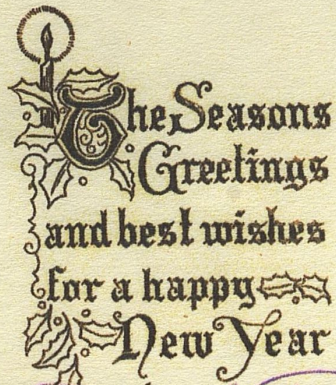 The Seasons
Greetings
and best wishes
for a happy
New Year